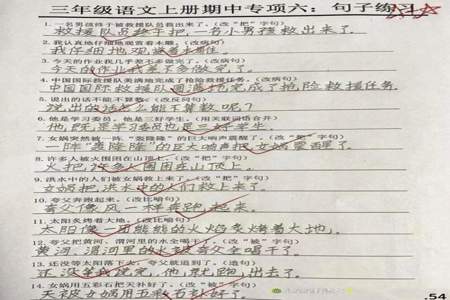 三年级语文上册期中专项六:句子练习
1.一名男孩终于被救援队员救出来了。(改“把”字句)
救援队员终于把一名小男孩救出来了。
2.我认真地仔细地观赏着木雕。(改病句)
我仔细地观赏着木雕。
3.今天的作业我几乎差不多做完了。(改病句)
今天的作业我差不多做完了。
4.中国国际救援队圆满地完成了抢险救援任务。(改病句)
中国国际救援队圆满地完成了抢险救援任务。
5.说出的话不能不算数。(改反问句)
说出的话怎么能不算数呢?
6.他是学习委员。他是三好学生。(用关联词语合并)
他既是学习委员也是三好学生。
7.女娲突然被一阵“轰隆隆”的巨大响声震醒了。(改“把”字句)
一阵“轰隆隆”的巨大响声把女娲震醒了。
8.许多人被火围困在山顶上。(改“把”字句)
火把许多人围困在山顶上。
9.洪水中的人们被女娲救上来了。(改“把”字句)
女娲把洪水中的人们救上来了。
10.夸父奔跑起来。(改比喻句)
夸父像风一样奔跑起来。
11.太阳炙烤着大地。(改比喻句)
太阳像一团熊熊的火焰炙烤着大地。
12.夸父把黄河、渭河里的水全喝干了。(改“被”字句)
黄河、渭河里的水被夸父全喝干了。
13.还没等太阳落下去,夸父就追到了。(造句)
还没等我说完,他就跑出去了。
14.女娲用五彩石把天补好了。(改“被”字句)
天被女娲用五彩石补好了。
.54